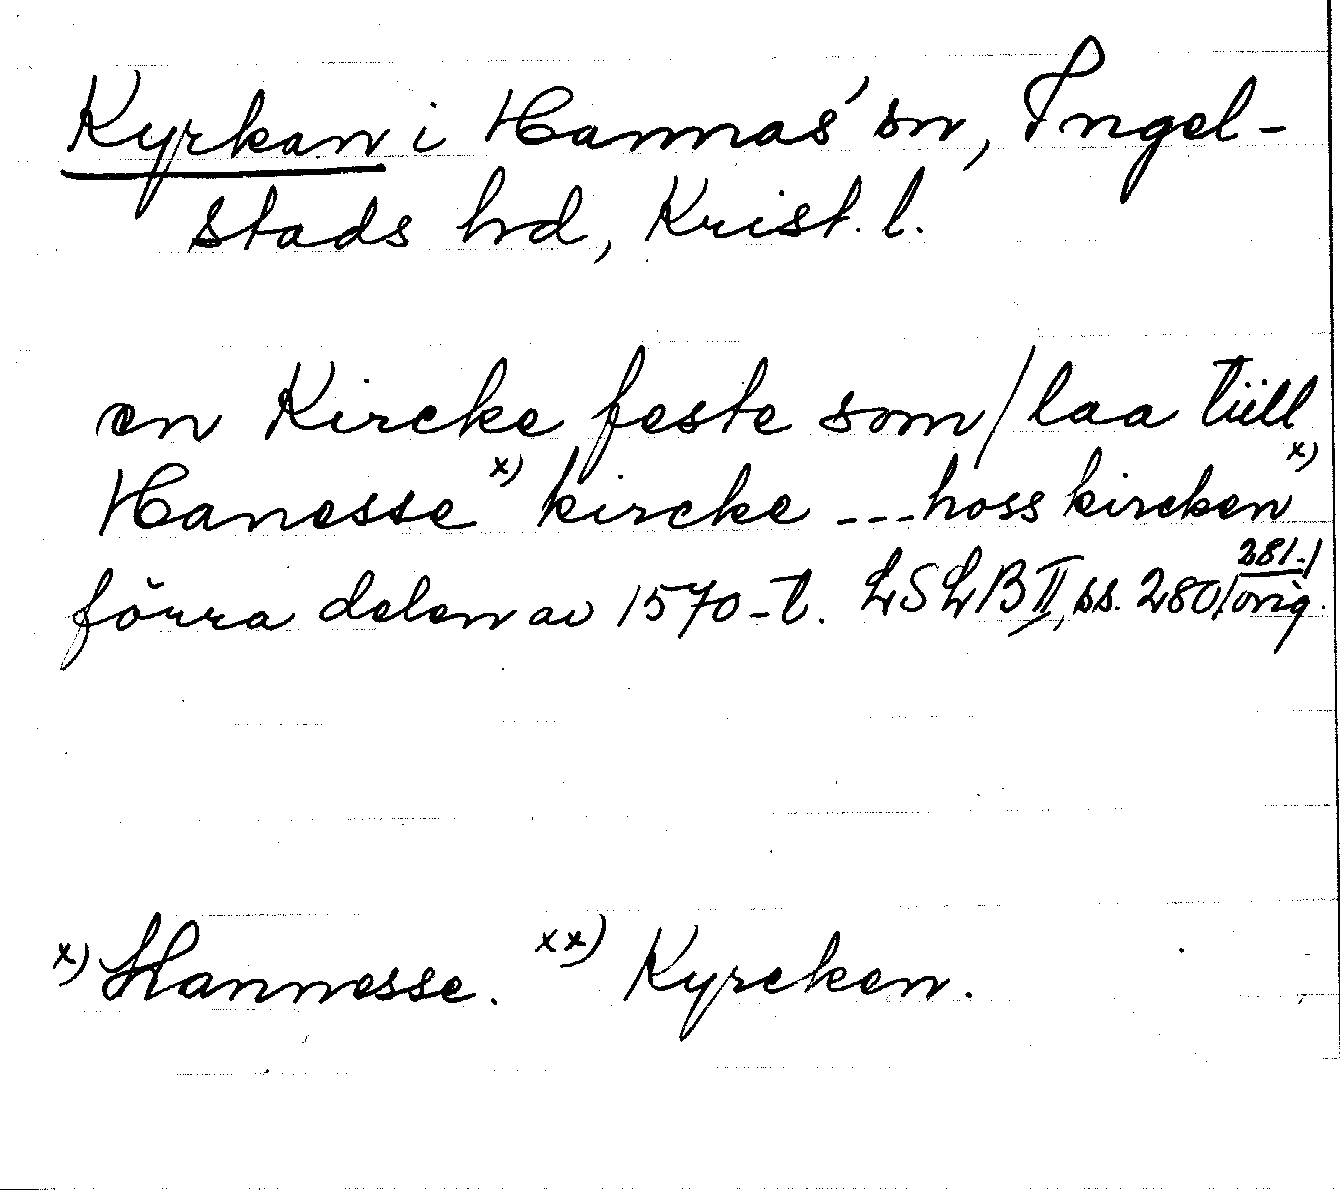 Kyrkan i Hannas' sn, Ingel-
stads hrd, Krist. l.
en Kircke feste som/laa tiill
Hanesse x) kircke ---hoss kircken x)
förra delen av 1570-t. LSLB II, ss. 280/281./orig.
x) Hannesse. xx) Kyrcken.